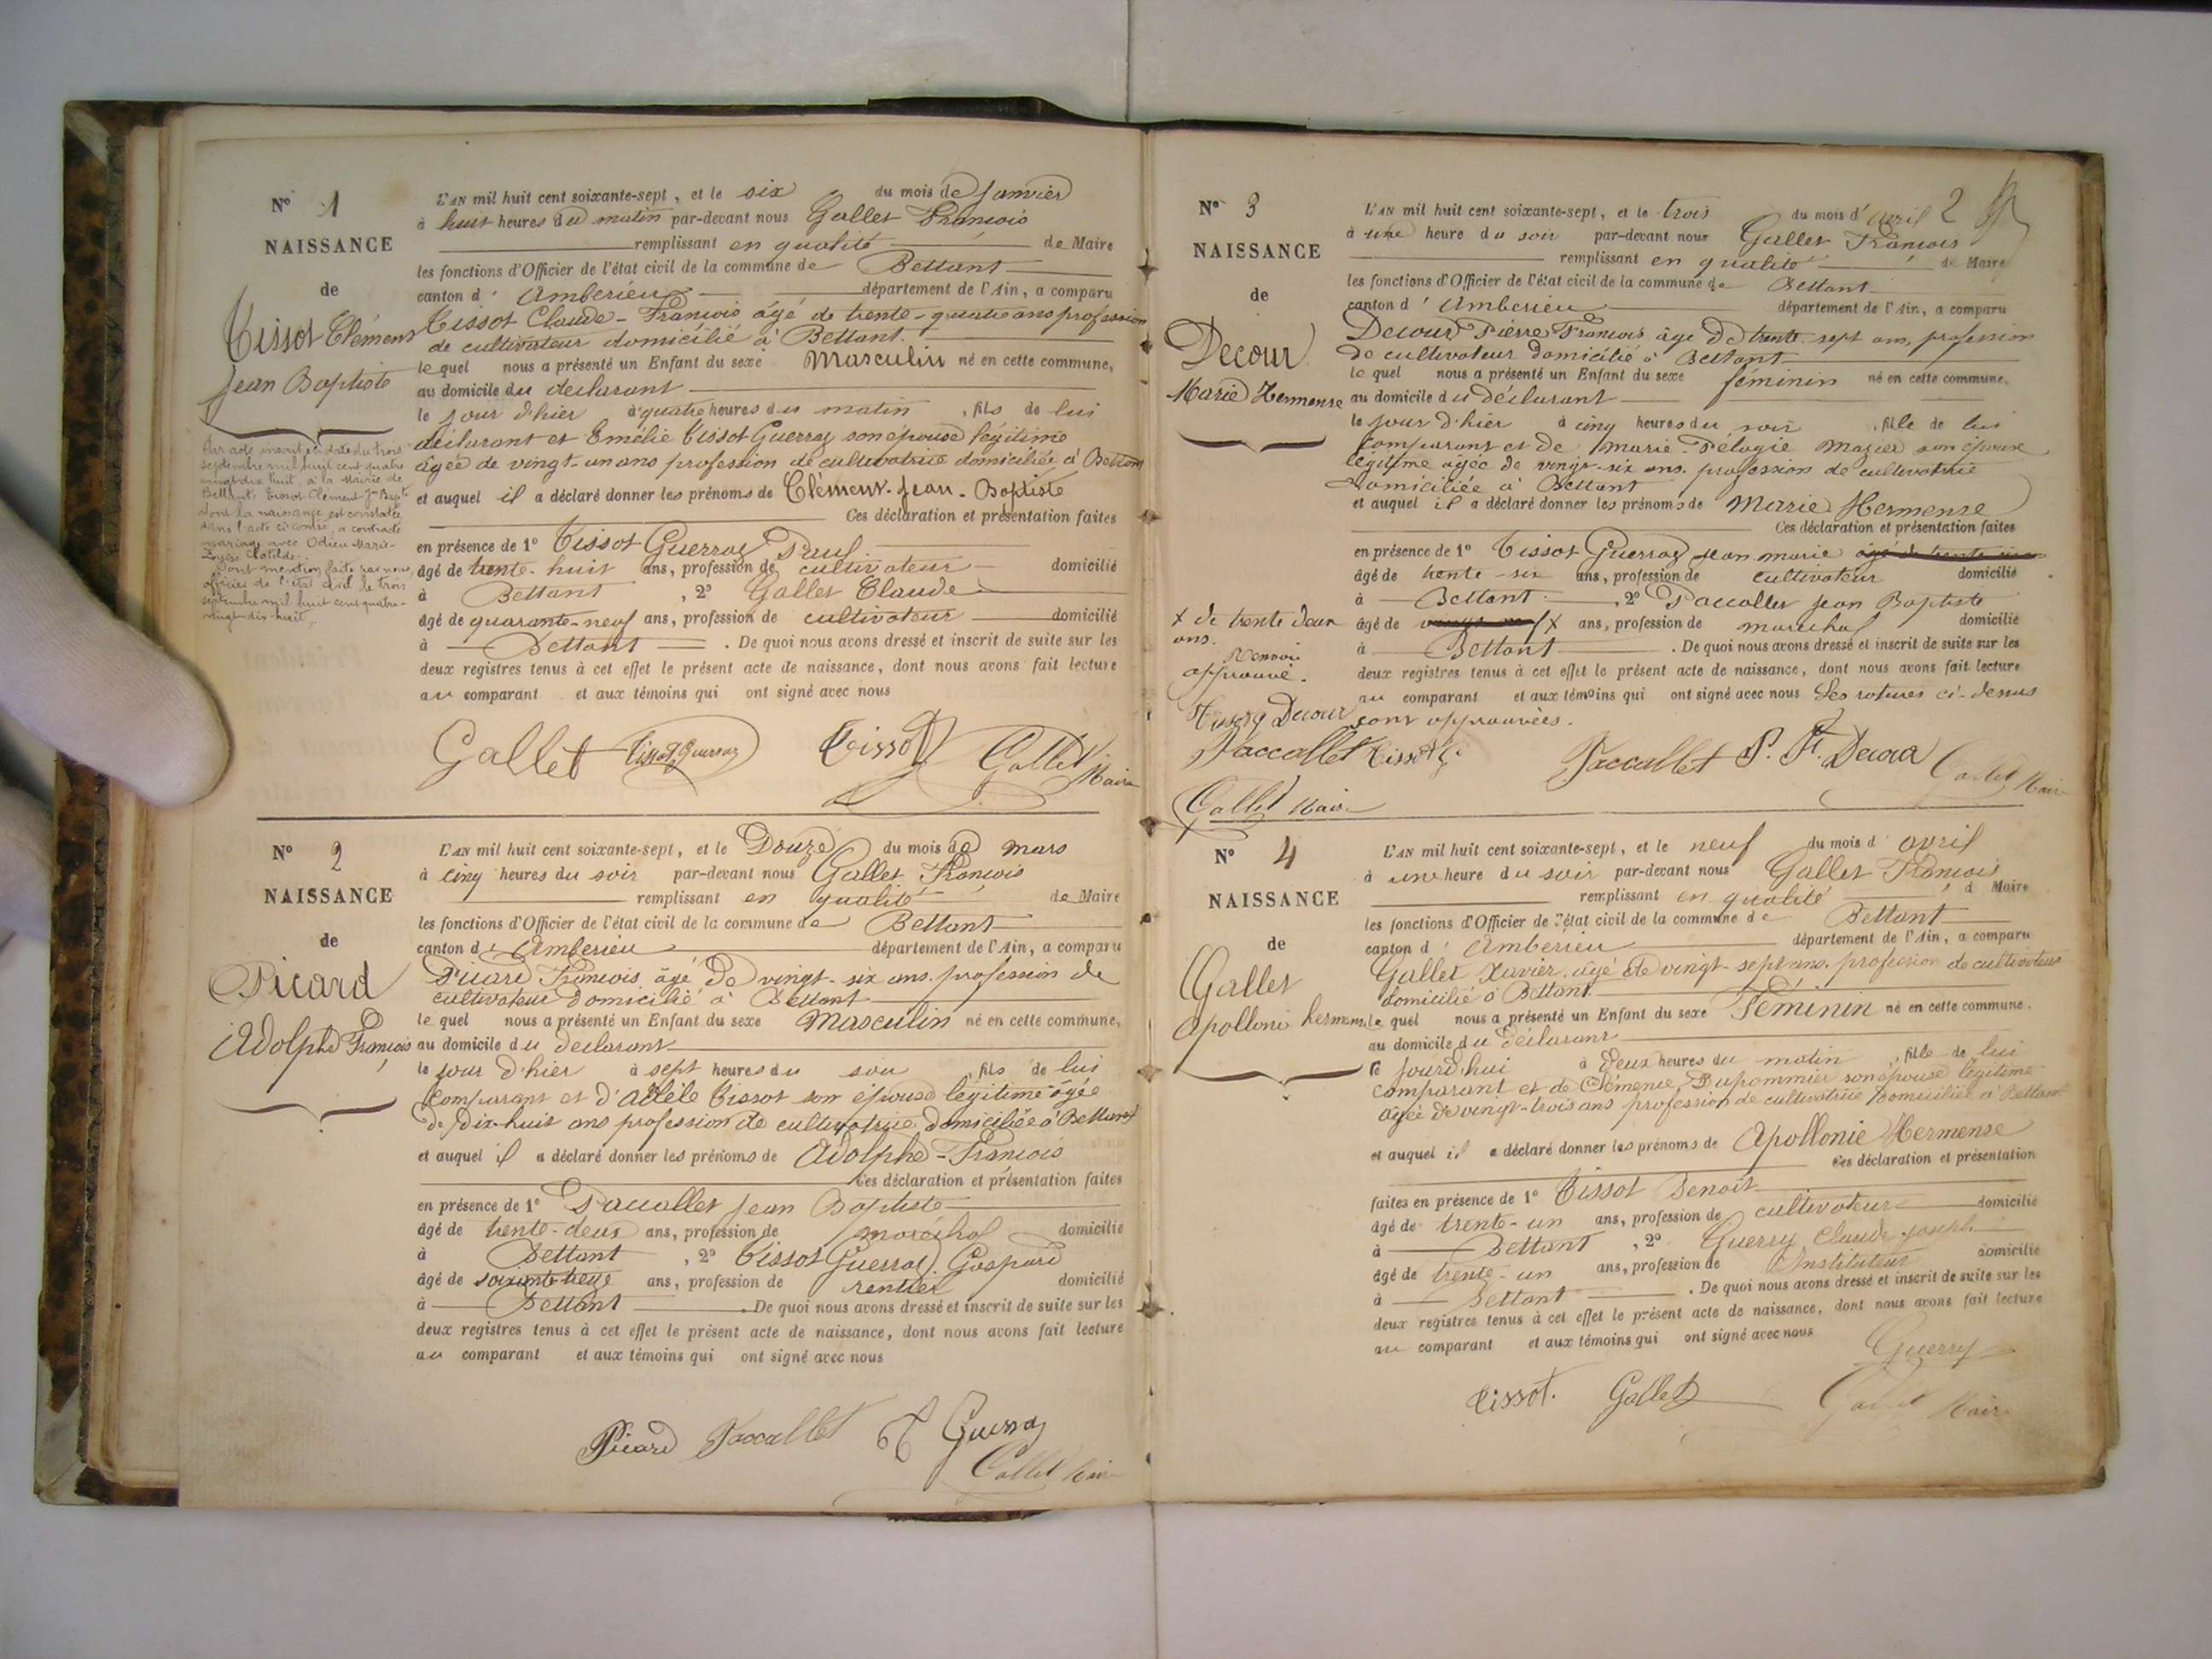 N° 1
NAISSANCE
de
Tissot Clément
Jean Baptiste
Par acte inscrit en date du trois
septembre mil huit cent quatre
vingt dix huit, à la Mairie de
Bettant, Tissot Clément Jn Bapte
dont la naissance est constatée
dans l'acte ci contre, a contracté
mariage avec Odieu Marie-
Clotilde.
Dont mention faite par nous,
officier de l'état civil le trois
septembre mil huit cent quatre-
vingt-dix-huit,
L'AN mil huit cent soixante-sept, et le six du mois de Janvier
à huit heures du matin par-devant nous Gallet François
remplissant en qualité de Maire
les fonctions d'Officier de l'état civil de la commune de Bettant
canton d' Amberieu département de l'Ain, a comparu
Tissot Claude-François âgé de trente-quatre ans profession
de cultivateur domicilié à Bettant.
le quel nous a présenté un Enfant du sexe Masculin né en cette commune,
au domicile du déclarant
le jour d'hier à quatre heures du matin, fils de lui
déclarant et Emélie Tissot Guerraz son épouse légitime
âgée de vingt-un ans profession de cultivatrice domiciliée à Bettant
et auquel il a déclaré donner les prénoms de Clément-Jean-Baptiste
Ces déclaration et présentation faites
en présence de 1° Tissot Guerraz Paul
âgé de trente-huit ans, profession de cultivateur domicilié
à Bettant, 2° Gallet Claude
âgé de quarante-neuf ans, profession de cultivateur domicilié
à Bettant. De quoi nous avons dressé et inscrit de suite sur les
deux registres tenus à cet effet le présent acte de naissance, dont nous avons fait lecture
au comparant et aux témoins qui ont signé avec nous
Gallet Tissot Guerraz Tissot Gallet Maire
N° 2
NAISSANCE
de
Picard
Adolphe François
L'AN mil huit cent soixante-sept, et le Douze du mois de mars
à cinq heures du soir par-devant nous Gallet François
remplissant en qualité de Maire
les fonctions d'Officier de l'état civil de la commune de Bettant
canton d' Amberieu département de l'Ain, a comparu
Picard François âgé de vingt-six ans profession de
cultivateur domicilié à Bettant
le quel nous a présenté un Enfant du sexe Masculin né en cette commune,
au domicile du déclarant
le jour d'hier à sept heures du soir, fils de lui
Comparant et d'Adèle Tissot son épouse légitime âgée
de dix-huit ans profession de cultivatrice domiciliée à Bettant
et auquel il a déclaré donner les prénoms de Adolphe-François
Ces déclaration et présentation faites
en présence de 1° Paccallet Jean Baptiste
âgé de trente-deux ans, profession de maréchal domicilié
à Bettant, 2° Tissot Guerraz Gaspard
âgé de soixante-treize ans, profession de rentier domicilié
à Bettant. De quoi nous avons dressé et inscrit de suite sur les
deux registres tenus à cet effet le présent acte de naissance, dont nous avons fait lecture
au comparant et aux témoins qui ont signé avec nous
Picard Paccallet Guerraz
Gallet Maire
2
N° 3
NAISSANCE
de
Decour
Marie Hermense
x de trente deux
ans.
Renvoi
approuvé.
Decour
Paccallet Tissot G.
Gallet Maire
L'AN mil huit cent soixante-sept, et le trois du mois d'avril
à une heure du soir par-devant nous Gallet François
remplissant en qualité de Maire
les fonctions d'Officier de l'état civil de la commune de Bettant
canton d' Amberieu département de l'Ain, a comparu
Decour Pierre François âgé de trente-sept ans, profession
de cultivateur domicilié à Bettant
le quel nous a présenté un Enfant du sexe féminin né en cette commune,
au domicile du déclarant
le jour d'hier à cinq heures du soir, fille de lui
Comparant et de Marie-Pélagie Mazier son épouse
légitime âgée de vingt-six ans profession de cultivatrice
domiciliée à Bettant
et auquel il a déclaré donner les prénoms de Marie Hermense
Ces déclaration et présentation faites
en présence de 1° Tissot Guerraz Jean marie
âgé de trente-six ans, profession de cultivateur domicilié
à Bettant, 2° Paccallet Jean Baptiste
âgé de x ans, profession de maréchal domicilié
à Bettant. De quoi nous avons dressé et inscrit de suite sur les
deux registres tenus à cet effet le présent acte de naissance, dont nous avons fait lecture
au comparant et aux témoins qui ont signé avec nous Les ratures ci-dessus
sont approuvées.
Paccallet P. F. Decour Gallet Maire
N° 4
NAISSANCE
de
Gallet
Apollonie hermense
L'AN mil huit cent soixante-sept, et le neuf du mois d' avril
à une heure du soir par-devant nous Gallet François
remplissant en qualité d Maire
les fonctions d'Officier de l'état civil de la commune de Bettant
canton d' Amberieu département de l'Ain, a comparu
Gallet Xavier âgé de vingt-sept ans profession de cultivateur
domicilié à Bettant
le quel nous a présenté un Enfant du sexe Féminin né en cette commune.
au domicile du déclarant
le jourd'hui à deux heures du matin, fille de lui
comparant et de Clémence Dupommier son épouse légitime
âgée de vingt-trois ans profession de cultivatrice domiciliée à Bettant
et auquel il a déclaré donner les prénoms de Apollonie Hermense
Ces déclaration et présentation
faites en présence de 1° Tissot Benoît
âgé de trente-un ans, profession de cultivateur domicilié
à Bettant, 2° Guerry Claude joseph
âgé de trente-un ans, profession de Instituteur domicilié
à Bettant. De quoi nous avons dressé et inscrit de suite sur les
deux registres tenus à cet effet le présent acte de naissance, dont nous avons fait lecture
au comparant et aux témoins qui ont signé avec nous
Guerry
Tissot. Gallet Gallet Maire